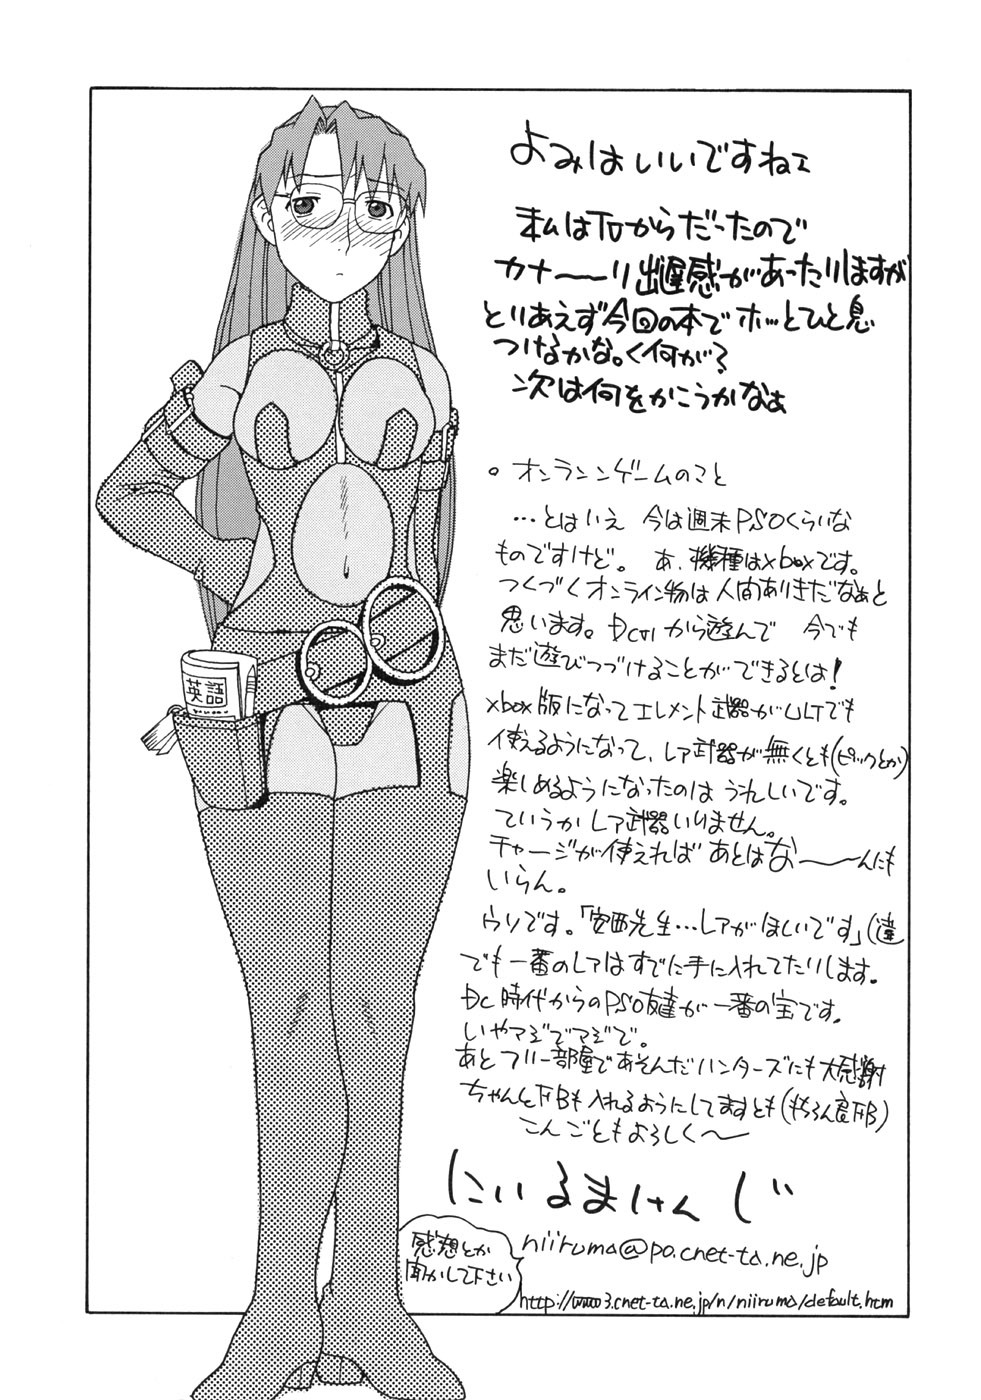 よみはいいですねェ
私はTVからだったので
カナ〜〜リ出遅感があったりしますが
とりあえず今回の本でホッとひと息
つけるかな。く何が?
次は何をかこうかなぁ
。オンランンゲームのこと
…とはいえ 今は週末PSOくらいな
ものですけど。 あ、機種はxboxです。
つくづくオンライン物は人間ありきだなぁと
思います。DCから遊んで 今でも
まだ遊びつづけることができるとは!
xbox版になってエレメント武器がULTでも
使えるようになって、レア武器が無くとも(ピックとか)
楽しめるようになったのは うれしいです。
ていうかレア武器いりません。
チャージが使えれば あとはな〜〜んにも
いらん。
ウソです。「安西先生…レアがほしいです」(違
でも一番のレアはすでに手に入れてたりします。
DC時代からのPSO友達が一番の宝です。
いやマジでマジで。
あとフリー部屋であそんだハンターズにも大感謝
ちゃんとFBも入れるようにしてますとも(もちろん度FB)
こんごともよろしく〜
にいるまけんじ
感想とか
聞かして下さい
niiruma@po.cnet-ta.ne.jp
http://www3.cnet-ta.ne.jp/n/niiruma/default.htm
英語